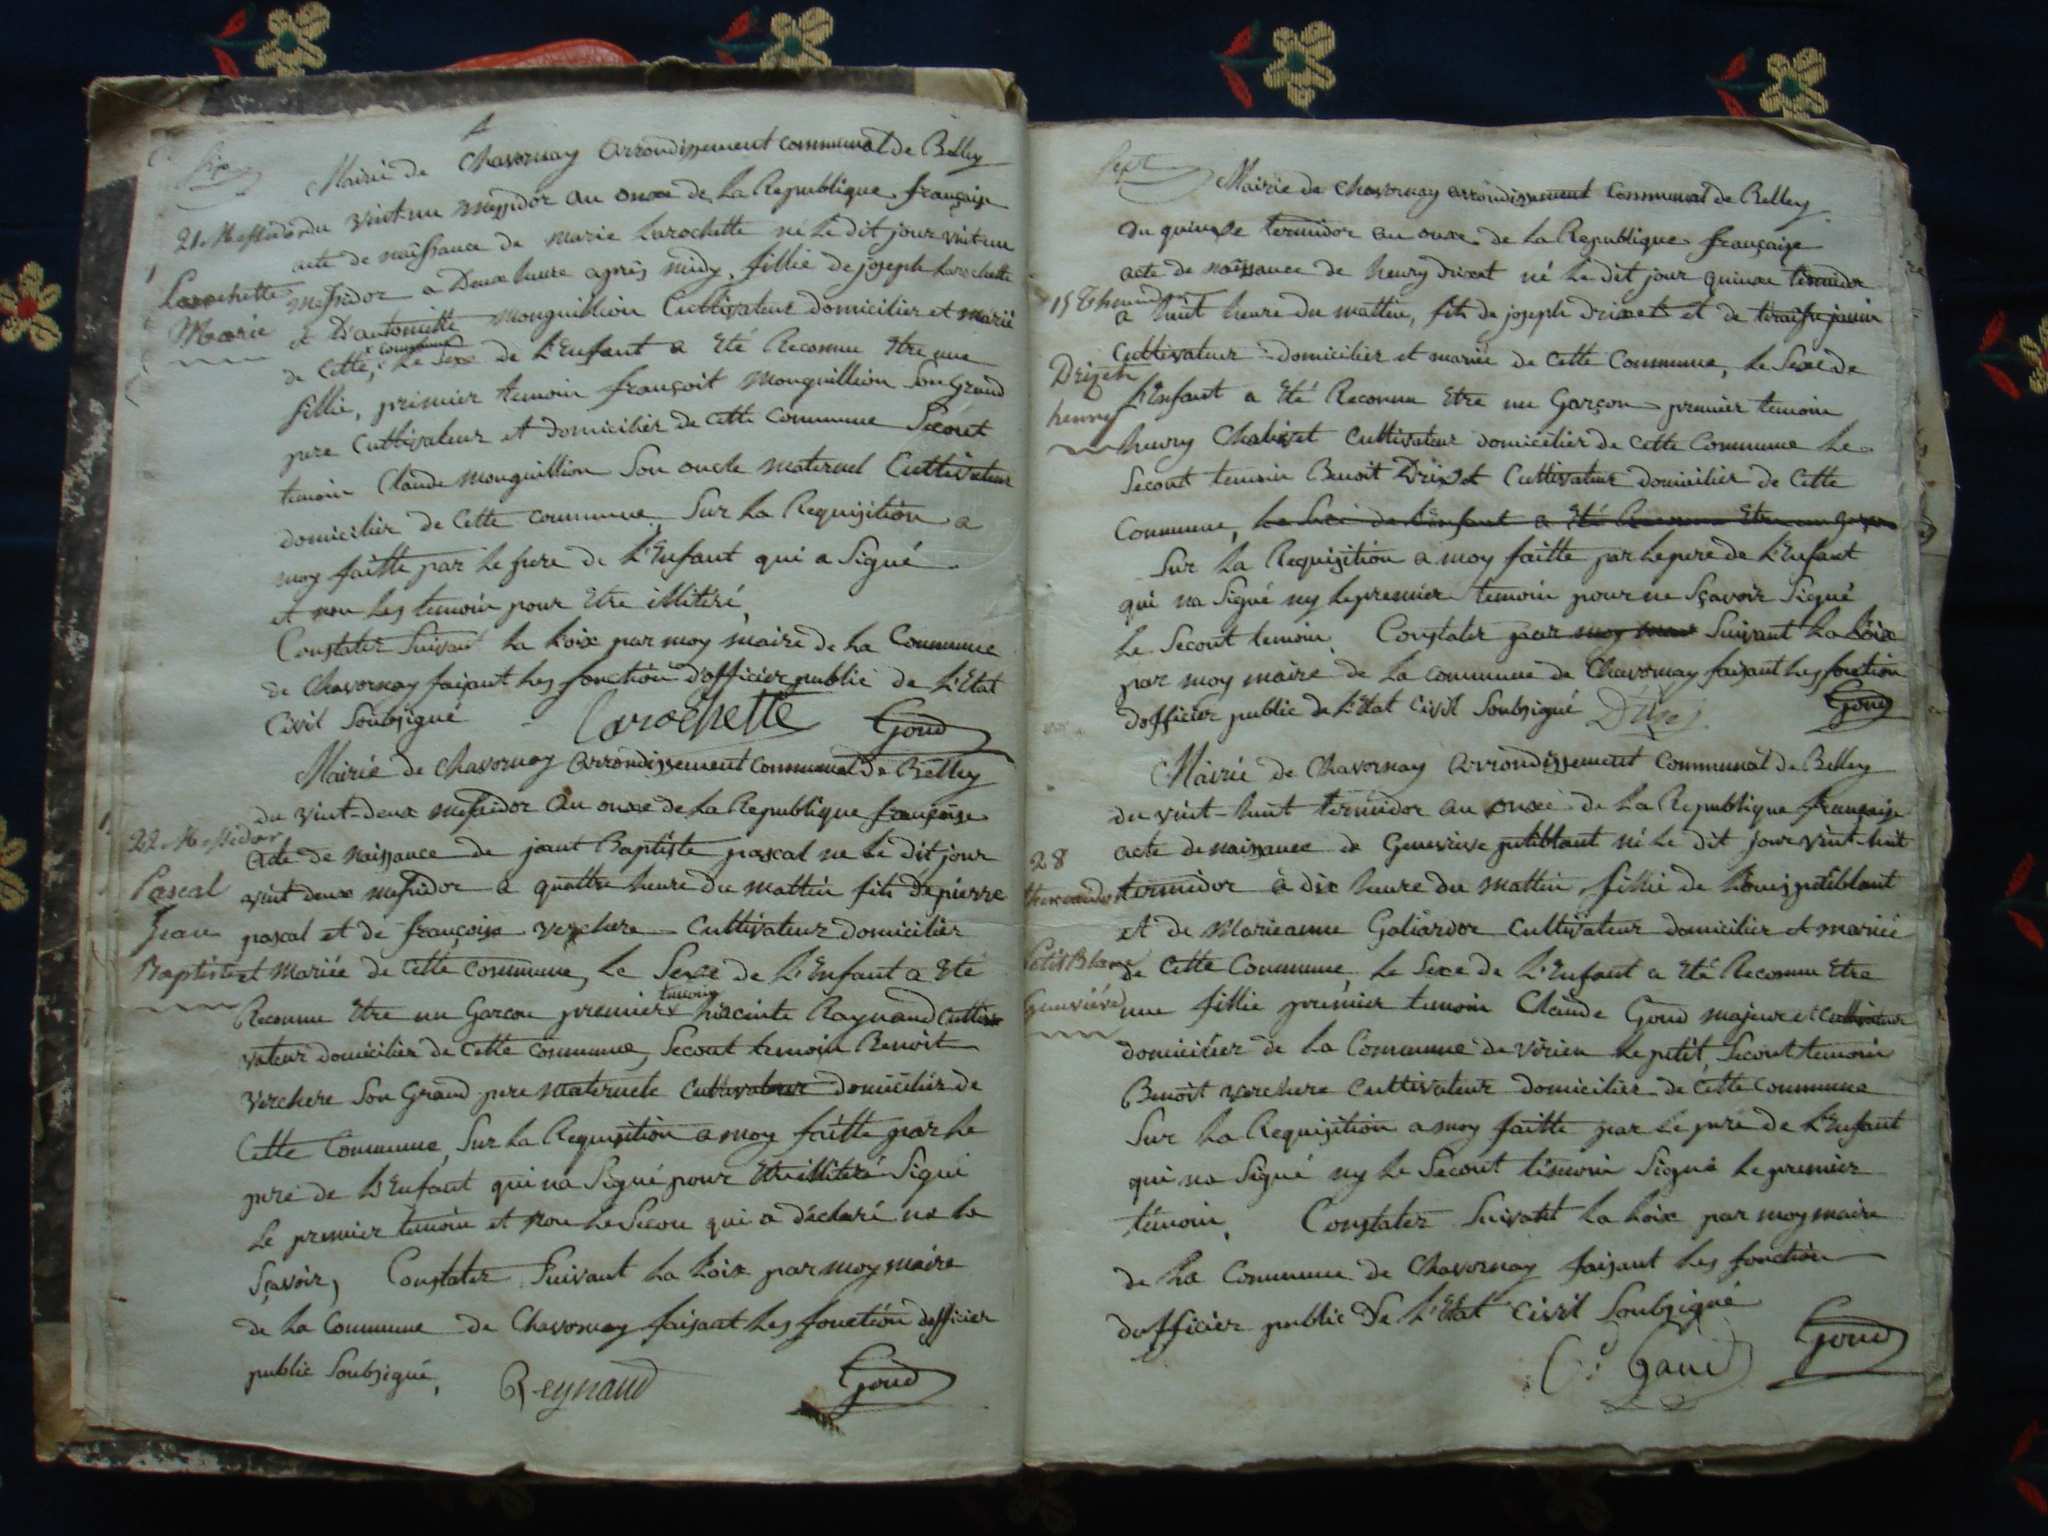 Six
Mairie de Chavornay arrondissement communal de Belley
21 Messidor
Larochette
Marie
du vint un messidor an onze de la Republique française
acte de naissance de marie Larochette né le dit jour vint un
messidor a Deux heure après midy, fillie de joseph Larochette
et D'antoinette monguillion Cultivateur domicilier et marié
de Cette commune, le Sexe de L'Enfant a Eté Reconnu Etre une
fillie, premier temoin françoit monguillion Son Grand
pere Cultivateur et domicilier de cette commune Secont
temoin Claude monguillion Son oncle maternel Cultivateur
domicilier de Cette commune, Sur La Requisition a
moy faitte par le pere de L'Enfant qui a Signé
et non les temoin pour Etre illitéré,
Constater Suivant la Loix par moy maire de la Commune
de Chavornay faisant les fonction d'officier public de L'Etat
Civil Soubsigné
Larochette Goud
Mairie de Chavornay arrondissement communal de Belley
22 Messidor
Pascal
Jean
Baptiste
du vint-deux messidor an onze de la Republique française
acte de naissance de jeant Baptiste pascal ne le dit jour
vint deux messidor a quattre heure du mattin fits de pierre
pascal et de françoise verchere Cultivateur domicilier
et Mariée de Cette commune, le Sexe de L'Enfant a Eté
Reconnu Etre un Garcon premier temoin hiacinte Raynaud Cultiv
vateur domicilier de Cette commune, Secont temoin Benoit
verchere Son Grand pere maternele cultivateur domicilier de
Cette Commune, Sur La Requisition a moy faitte par le
pere de L'Enfant qui na Signé pour Etre illitéré Signé
Le premier temoin et non le Secon qui a déclaré ne le
Sçavoir, Constater Suivant la Loix par moy maire
de la Commune de Chavornay faisant les fonction dofficier
public Soubsigné,
Reynaud Goud
Sept
Mairie de Chavornay arrondissement Communal de Belley
15 Thermidor
Drizet
henry
du quinze termidor an onze de la Republique française
acte de naissance de henry drizet né le dit jour quinze termidor
a huit heure du mattin, fits de joseph drizet et de janin
Cultivateur domicilier et mariée de Cette Commune, le Sexe de
L'Enfant a Eté Reconnu Etre un Garçon premier temoin
henry Chabizet Cultivateur domicilier de Cette Commune le
Secont temoin Benoit Drizet Cultivateur domicilier de Cette
Commune, le Sexe de L'Enfant a Eté Reconnu Etre un Garçon
Sur La Requisition a moy faitte par le pere de L'Enfant
qui na Signé ny le premier temoin pour ne Sçavoir Signé
Le Secont temoin. Constater par moy Suivant La Loix
par moy maire de la commune de Chavornay faisant les fonction
dofficier public de L'Etat Civil Soubsigné Goud
Mairie de Chavornay arrondissement Communal de Belley
28
thermidor
Petit Blanc
Genviéve
du vint-huit termidor an onze de la Republique française
acte de naissance de Genevieve petiblant né le dit jour vint-huit
termidor à dix heure du mattin, fillie de Louis petiblant
et de Marieanne Galiardor Cultivateur domicilier et mariée
de Cette Commune, le Sexe de L'Enfant a Eté Reconnu Etre
une fillie premier temoin Claude Goud majeure et Cultivateur
domicilier de la Commune de virieu le petit, Secont temoin
Benoit verchere Cultivateur domicilier de Cette Commune
Sur La Requisition a moy faitte par le pere de L'Enfant
qui na Signé ny le Secont temoin Signé le premier
temoin, Constater Suivant la Loix par moy maire
de la Commune de Chavornay faisant les fonction
dofficier public de L'Etat Civil Soubsigné
Goud